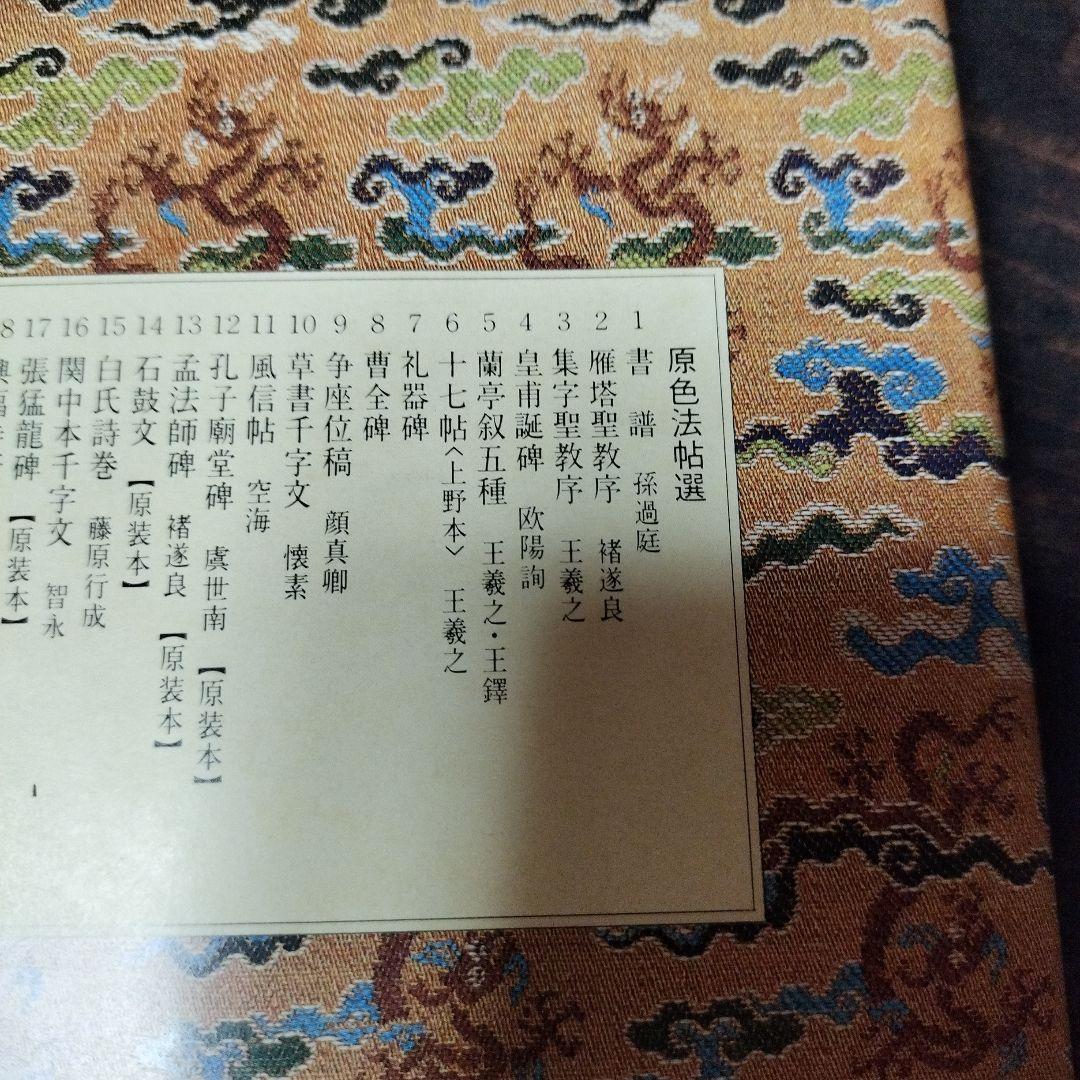 原色法帖選
1 書譜 孫過庭
2 雁塔聖教序 褚遂良
3 集字聖教序 王羲之
4 皇甫誕碑 欧陽詢
5 蘭亭叙五種 王羲之・王鐸
6 十七帖〈上野本〉 王羲之
7 礼器碑
8 曹全碑
9 争座位稿 顔真卿
10 草書千字文 懐素
11 風信帖 空海
12 孔子廟堂碑 虞世南 【原装本】
13 孟法師碑 褚遂良 【原装本】
14 石鼓文 【原装本】
15 白氏詩巻 藤原行成
16 関中本千字文 智永
17 張猛龍碑 【原装本】
8